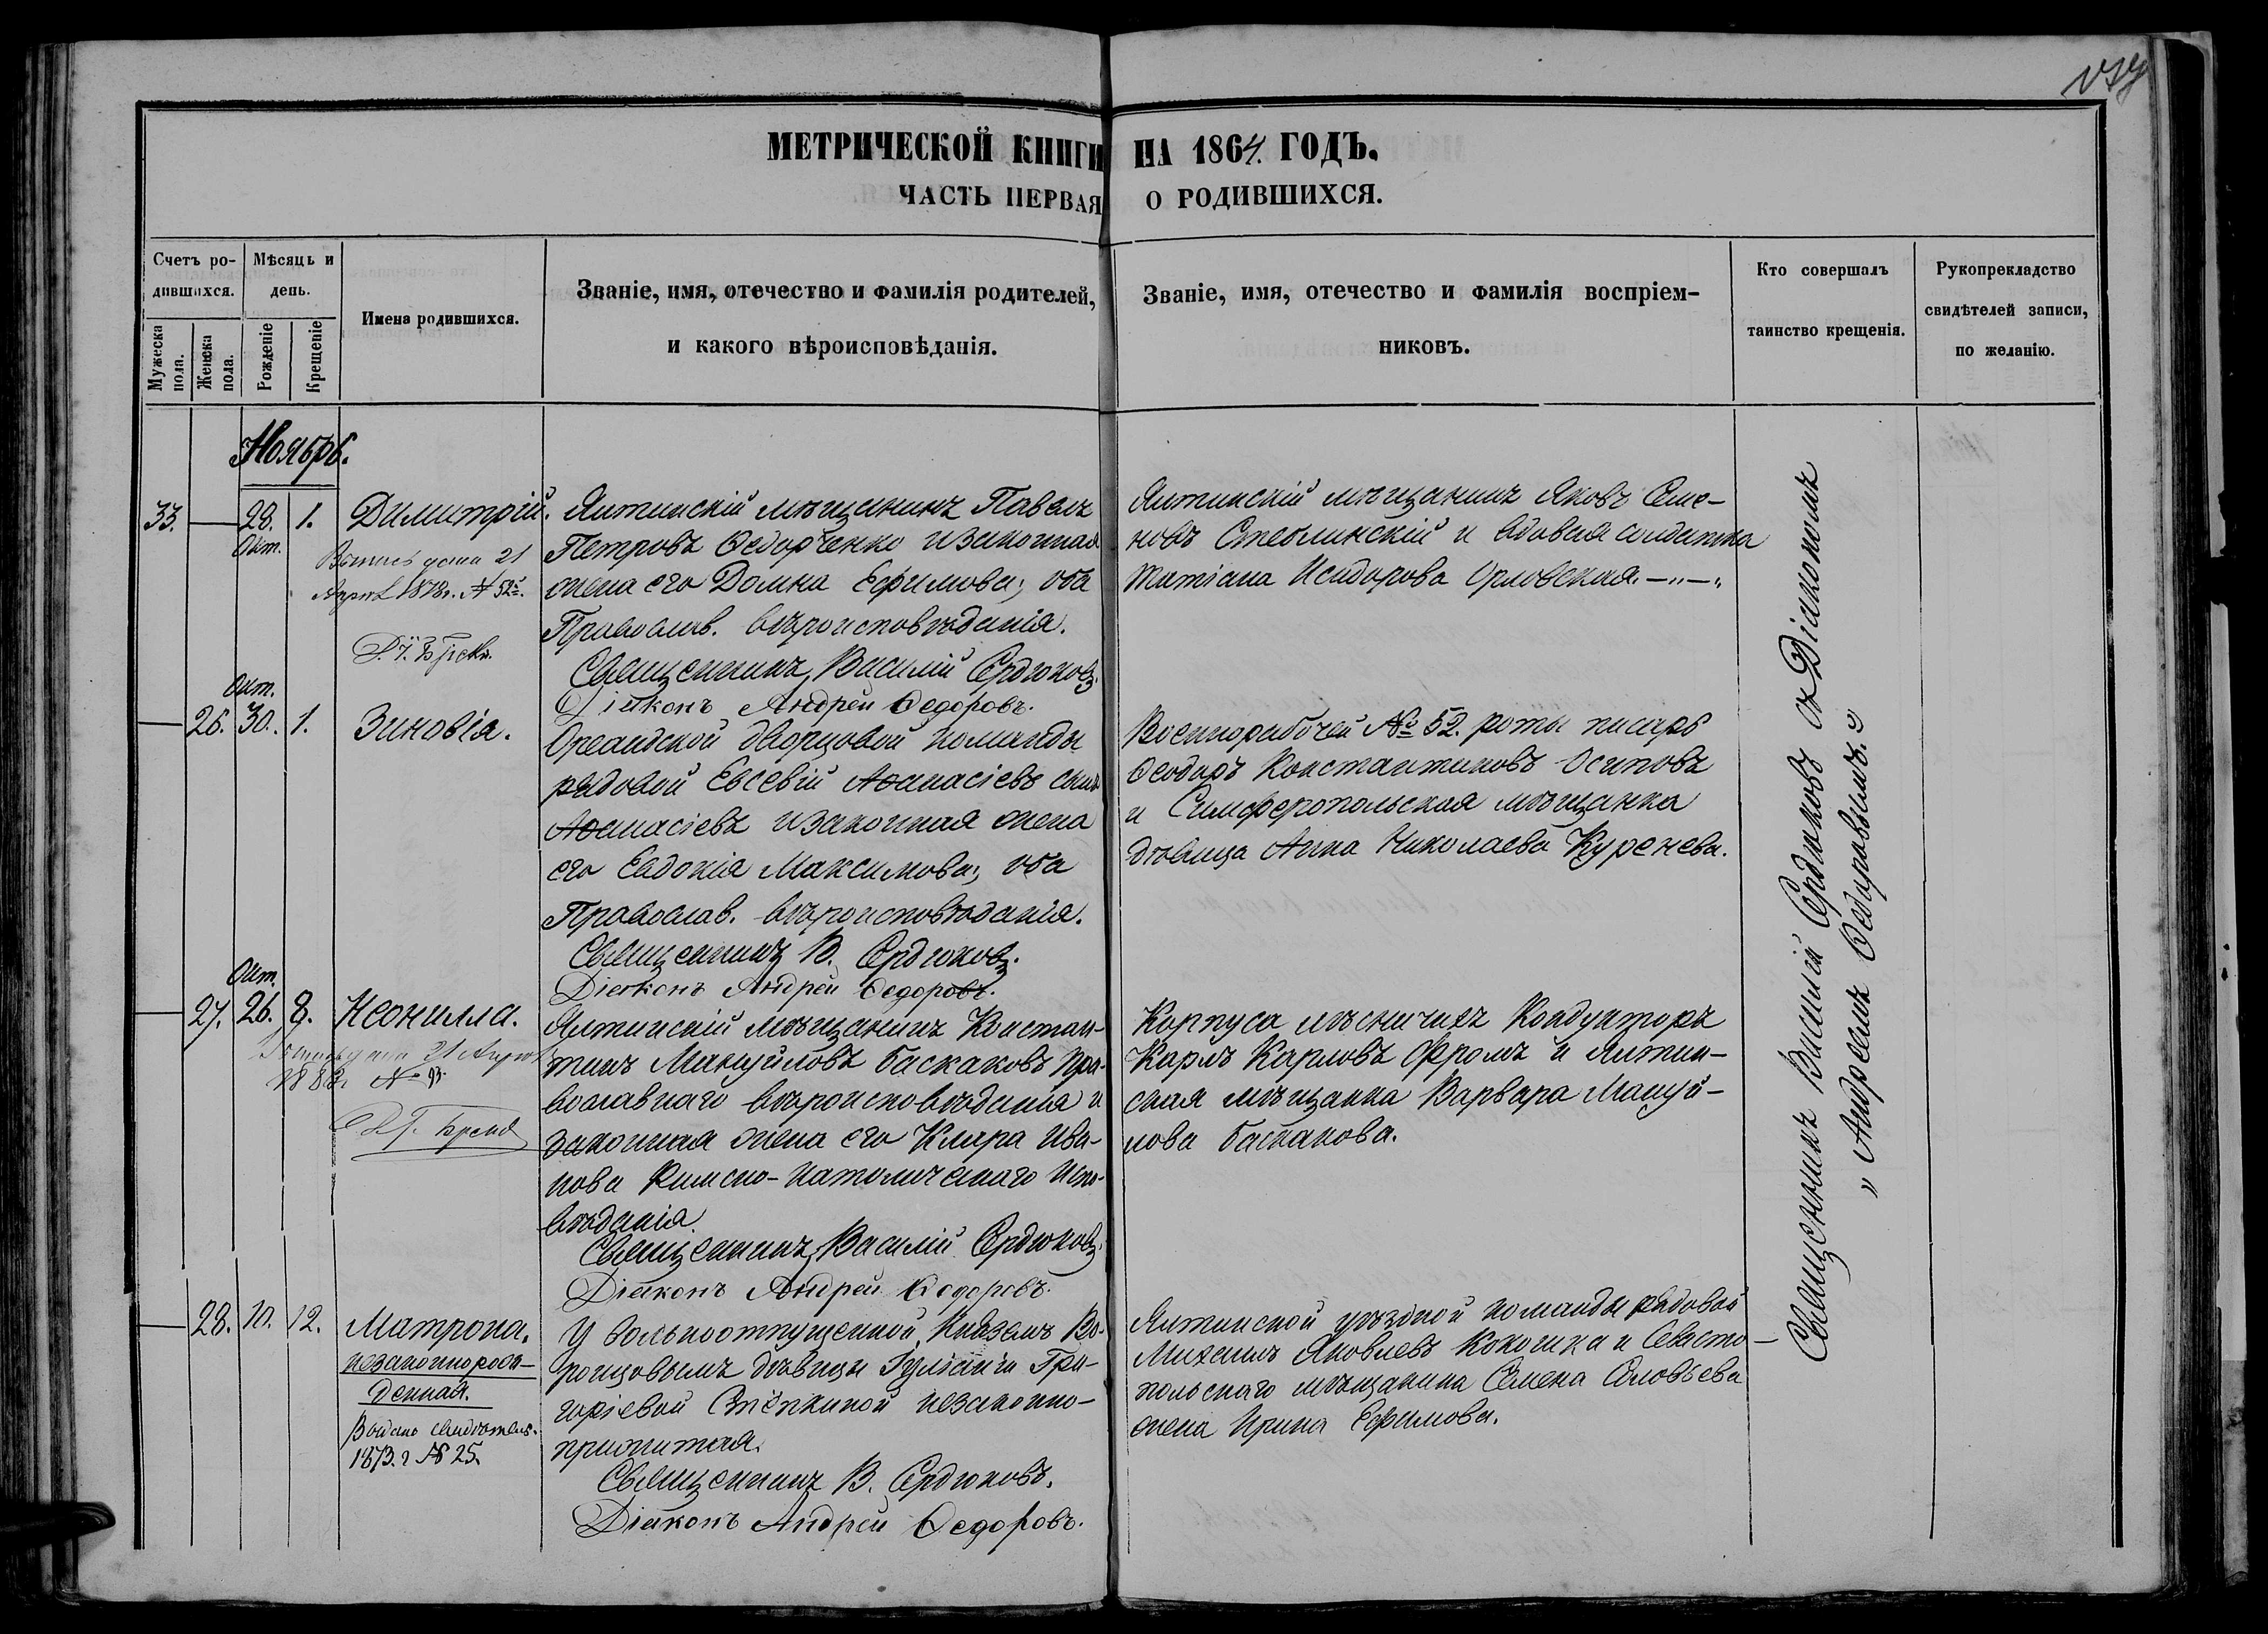 МЕТРИЧЕСКОЙ КНИГИ НА 1864. ГОДЪ.
ЧАСТЬ ПЕРВАЯ О РОДИВШИХСЯ.
Счетъ ро-
дившихся.
Мужеска пола.
Женска пола.
Мѣсяцъ и
день.
Рожденіе
Крещеніе
Имена родившихся.
Званіе, имя, отечество и фамилія родителей,
и какого вѣроисповѣданія.
Званіе, имя, отечество и фамилія воспріем-
никовъ.
Кто совершалъ
таинство крещенія.
Рукоприкладство
свидѣтелей записи,
по желанію.
Ноябрь.
33. — 28. Окт. 1.
Димитрій.
21
1878г. № 52.
Ялтинскій мѣщанинъ Павелъ
Петровъ Ѳедорченко и законная
жена его Домна Ефимова; оба
Православ. вѣроисповѣданія.
Священникъ Василій Сердюковъ.
Діаконъ Андрей Ѳедоровъ.
Ялтинскій мѣщанинъ Яковъ Семе-
новъ Стеблинскій и вдовая солдатка
Татіана Исидорова Орловская. —"—"
— 26. Окт. 30. 1.
Зиновія.
Ореандской дворцовой команды
рядовой Евсевій Аѳанасіевъ сынъ
Аѳанасіевъ и законная жена
его Евдокія Максимова; оба
Православ. вѣроисповѣданія.
Священникъ В. Сердюковъ.
Діаконъ Андрей Ѳедоровъ.
Военнорабочей № 52. роты писарь
Ѳеодоръ Константиновъ Осиповъ
и Симферопольская мѣщанка
дѣвица Анна Николаева Куренева.
— 27. Окт. 26. 8.
Неонилла.
21
188
Ялтинскій мѣщанинъ Констан-
тинъ Мануйловъ Баскаковъ Пра-
вославнаго вѣроисповѣданія и
законная жена его Клара Ива-
нова Римско-католическаго Испо-
вѣданія.
Священникъ Василій Сердюковъ.
Діаконъ Андрей Ѳедоровъ.
Корпуса лѣсничихъ Кондукторъ
Карлъ Карловъ Фромъ и Ялтин-
ская мѣщанка Варвара Мануй-
лова Баскакова.
— 28. 10. 12.
Матрона.
незаконнорож-
денная.
Выдано свидѣтел.
1873. г № 25.
У вольноотпущенной Княземъ Во-
ронцовымъ дѣвицы Іуліаніи Гри-
горіевой Стёпкиной незаконно-
прижитая.
Священникъ В. Сердюковъ.
Діаконъ Андрей Ѳедоровъ.
Ялтинской уѣздной команды рядовой
Михаилъ Яковлевъ Кокошка и Севасто-
польскаго мѣщанина Семена Соловьева
жена Ирина Ефимова.
Священникъ Василій Сердюковъ съ Діакономъ
" Андреемъ Ѳедоровымъ. "